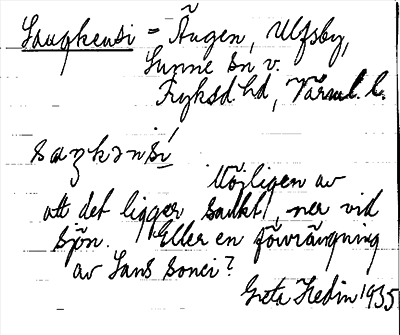 Saugkensi = Ängen, Ulfsby,
Sunne sn v.
Fryksd. hd, Värml. l.
saʒkənsí
Möjligen av
att det ligger sankt, ner vid
sjön. Eller en förvrängning
av Sans souci?
Greta Hedin 1935